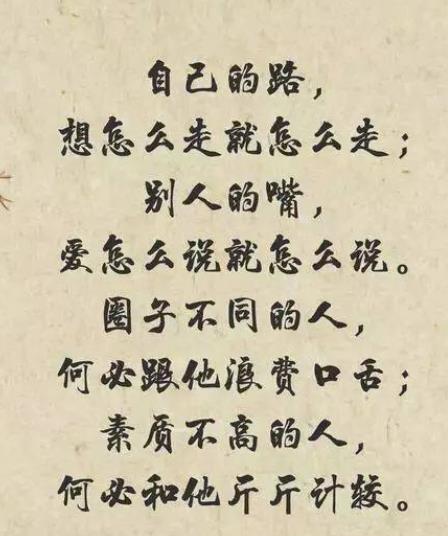 自己的路，
想怎么走就怎么走；
别人的嘴，
爱怎么说就怎么说。
圈子不同的人，
何必跟他浪费口舌；
素质不高的人，
何必和他斤斤计较。